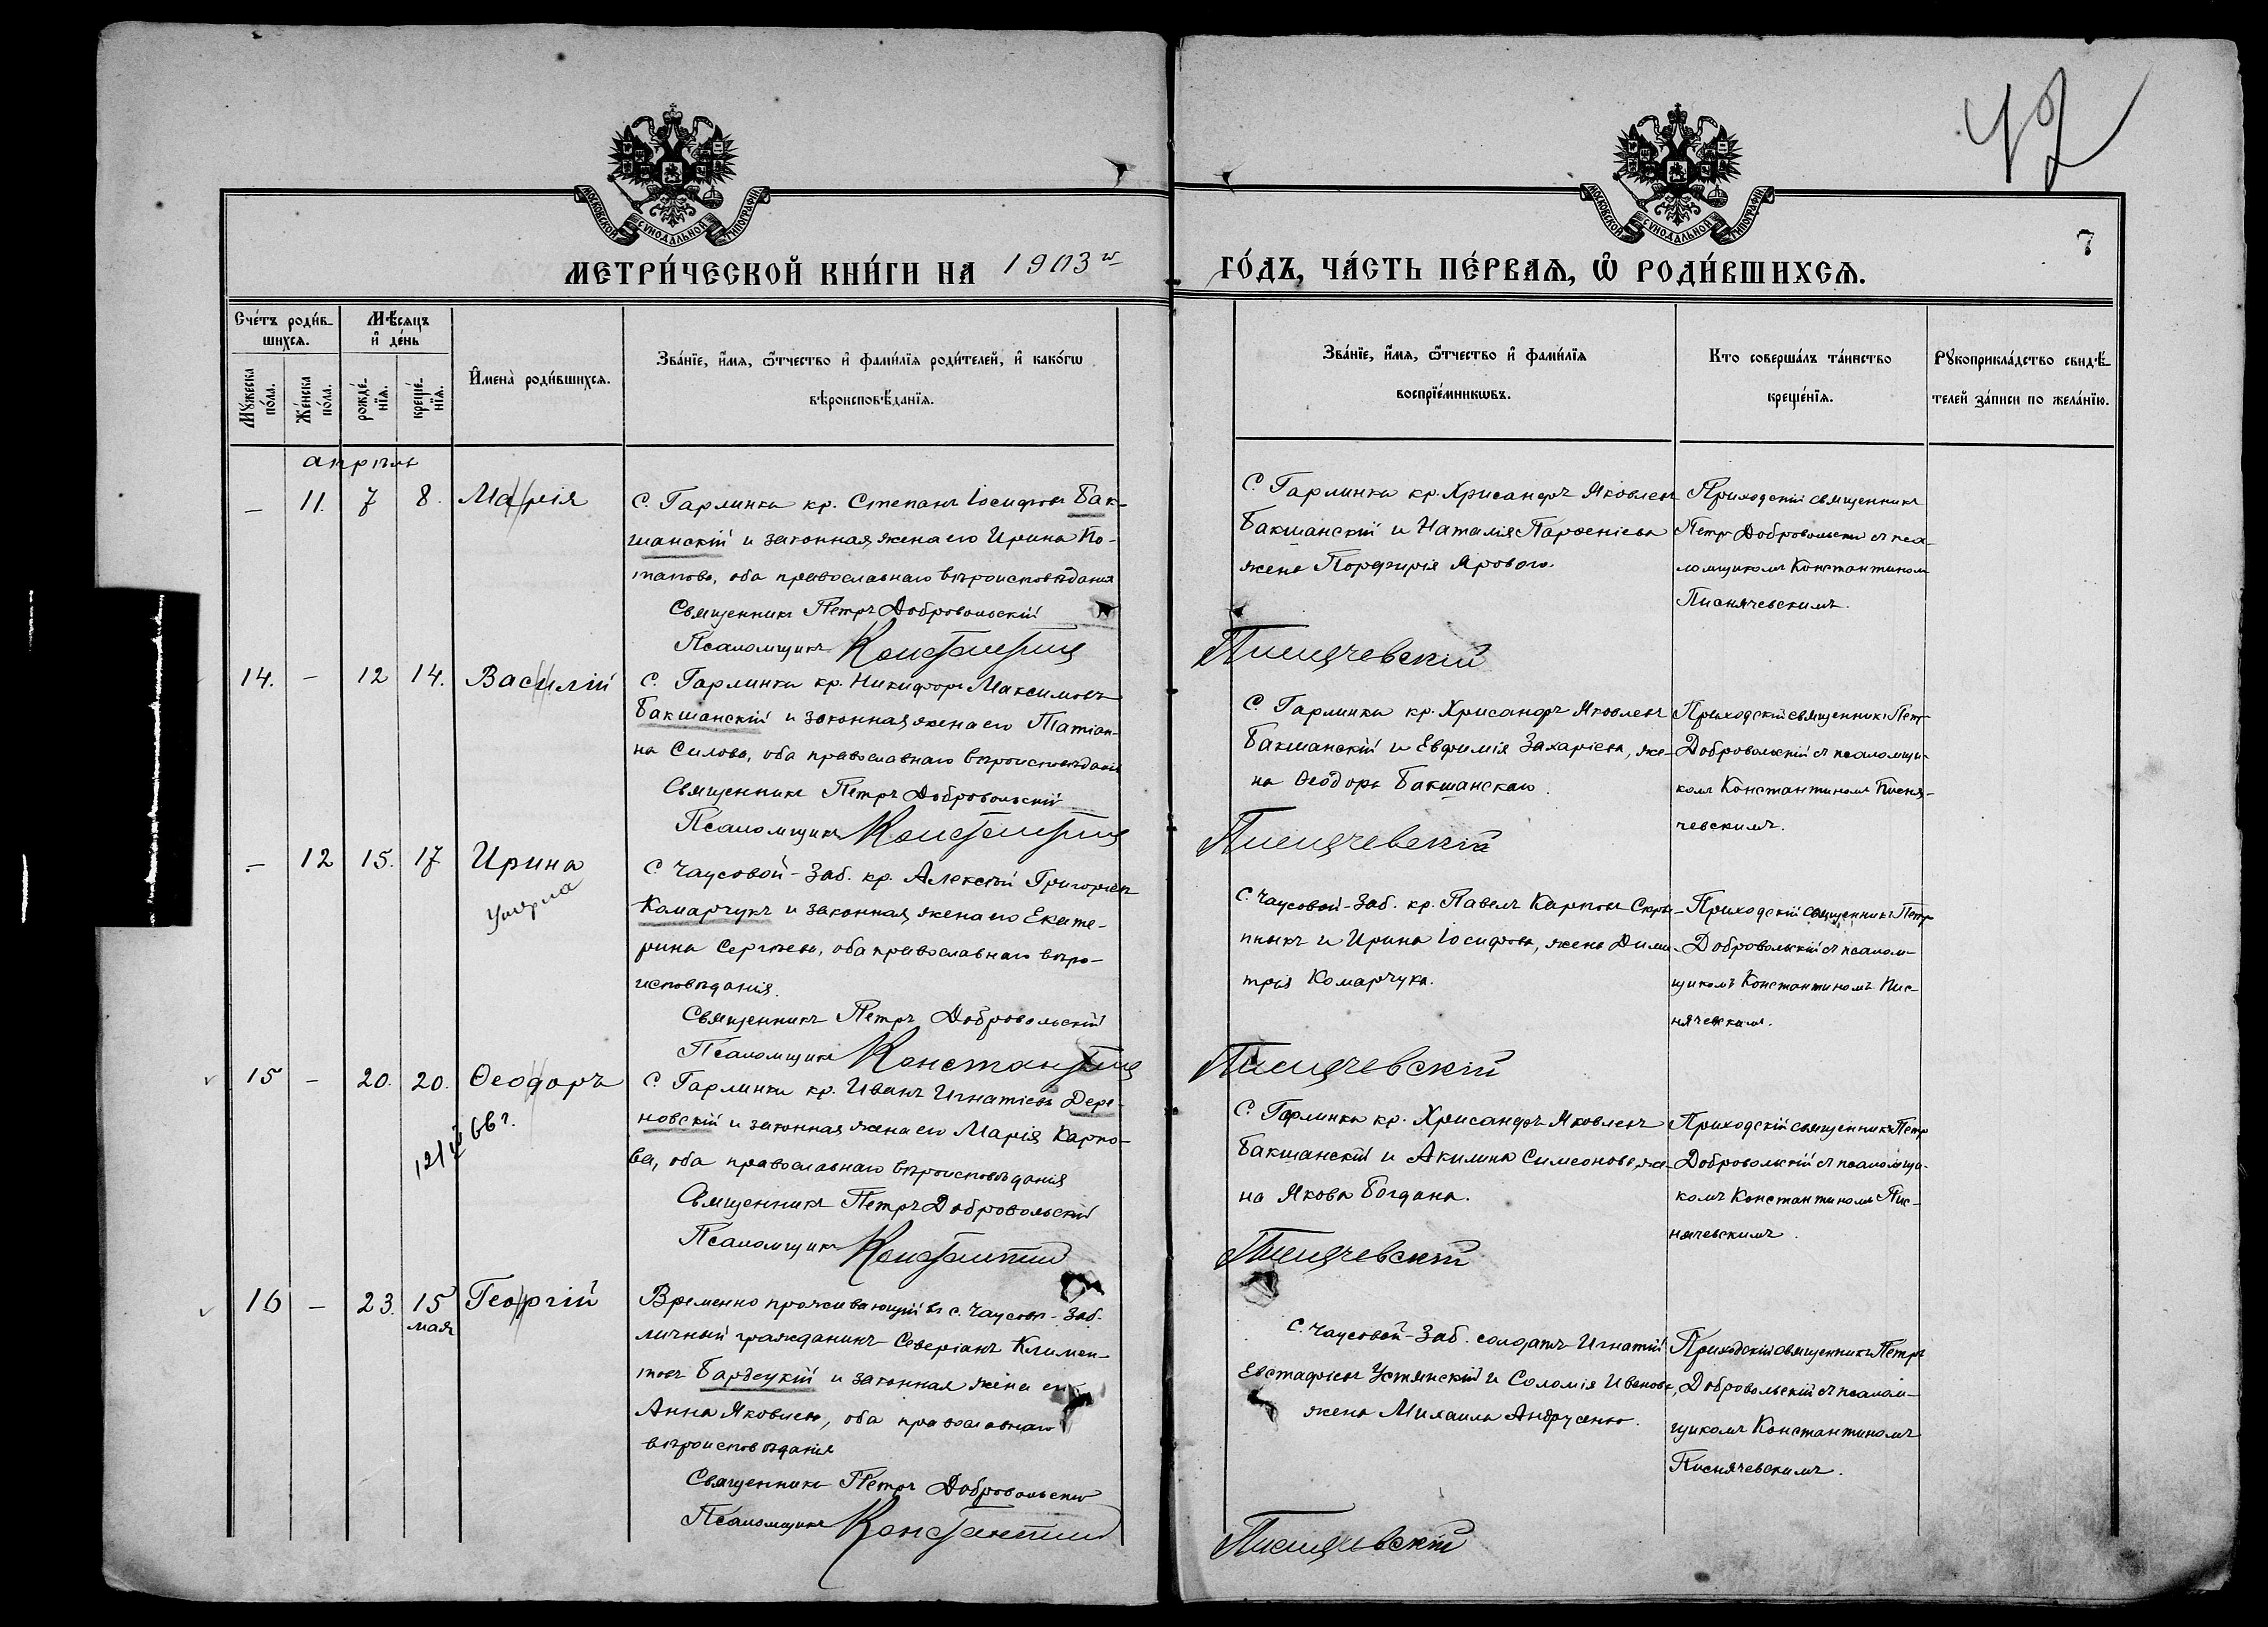 42
7
МОСКОВСКОЙ СѴНОДАЛЬНОЙ ТИПОГРАФІИ
МОСКОВСКОЙ СѴНОДАЛЬНОЙ ТИПОГРАФІИ
МЕТРИ́ЧЕСКОЙ КНИ́ГИ НА 1903 й
ГО́ДЪ, ЧА́СТЬ ПЕ́РВАѦ, Ѿ РОДИ́ВШИХСѦ.
Сче́тъ роди́в-
шихсѧ.
Мѣ́сѧцъ
и҆ де́нь
Мꙋ́жеска
по́ла.
Же́нска
по́ла.
рожде́-
нїѧ.
креще́-
нїѧ.
И҆мена̀ роди́вшихсѧ.
Зва́нїе, и҆́мѧ, ѻ҆́тчество и҆ фами́лїѧ роди́телей, и҆ како́гѡ
вѣроисповѣ́данїѧ.
Зва́нїе, и҆́мѧ, ѻ҆́тчество и҆ фами́лїѧ
воспрїе́мникѡвъ.
Кто соверша́лъ та́инство
креще́нїѧ.
Рꙋкоприкла́дство свидѣ́-
телей за́писи по жела́нїю.
апрѣль
– 11. 7 8. Марія
С. Гарлинки кр. Степанъ Іосифовъ Бак-
шанскій и законная жена его Ирина По-
тапова, оба православнаго вѣроисповѣданія
Священникъ Петръ Добровольскій
Псаломщикъ Константинъ
С. Гарлинки кр. Хрисанфъ Яковлевъ
Бакшанскій и Наталія Парѳеніева
жена Порфирія Ярового.
Приходскій священникъ
Петръ Добровольскій съ пса-
ломщикомъ Константиномъ
Писнячевскимъ.
Писнячевскій
14. – 12 14. Василій
С. Гарлинки кр. Никифоръ Максимовъ
Бакшанскій и законная жена его Татіан-
на Силова, оба православнаго вѣроисповѣданія
Священникъ Петръ Добровольскій
Псаломщикъ Константинъ
С. Гарлинки кр. Хрисанфъ Яковлевъ
Бакшанскій и Евфимія Захаріева, же-
на Ѳеодора Бакшанскаго.
Приходскій священникъ Петръ
Добровольскій съ псаломщи-
комъ Константиномъ Писня-
чевскимъ.
Писнячевскій
– 12 15. 17 Ирина
умерла
С. Чаусовой-Заб. кр. Алексѣй Григорьевъ
Комарчукъ и законная жена его Екате-
рина Сергѣева, оба православнаго вѣро-
исповѣданія.
Священникъ Петръ Добровольскій
Псаломщикъ Константинъ
С. Чаусовой-Заб. кр. Павелъ Карповъ Скри-
пникъ и Ирина Іосифова, жена Дими-
трія Комарчука.
Приходскій священникъ Петръ
Добровольскій съ псалом-
щикомъ Константиномъ Пис-
нячевскимъ.
Писнячевскій
15 – 20. 20. Ѳеодоръ
66 г.
С. Гарлинки кр. Иванъ Игнатіевъ Дере-
новскій и законная жена его Марія Карпо-
ва, оба православнаго вѣроисповѣданія
Священникъ Петръ Добровольскій
Псаломщикъ Константинъ
С. Гарлинки кр. Хрисанфъ Яковлевъ
Бакшанскій и Акилина Симеонова, же-
на Якова Богдана.
Приходскій священникъ Петръ
Добровольскій съ псаломщи-
комъ Константиномъ Пис-
нячевскимъ.
Писнячевскій
16 – 23. 15 Георгій
мая
Временно проживающій въ с. Чаусовѣ-Заб.
личный гражданинъ Северіанъ Климен-
товъ Бардецкій и законная жена его
Анна Яковлева, оба православнаго
вѣроисповѣданія
Священникъ Петръ Добровольскій
Псаломщикъ Константинъ
С. Чаусовой-Заб. солдатъ Игнатій
Евстафіевъ Устянскій и Соломія Иванова,
жена Михаила Андрусенко.
Приходскій священникъ Петръ
Добровольскій съ псалом-
щикомъ Константиномъ
Писнячевскимъ.
Писнячевскій